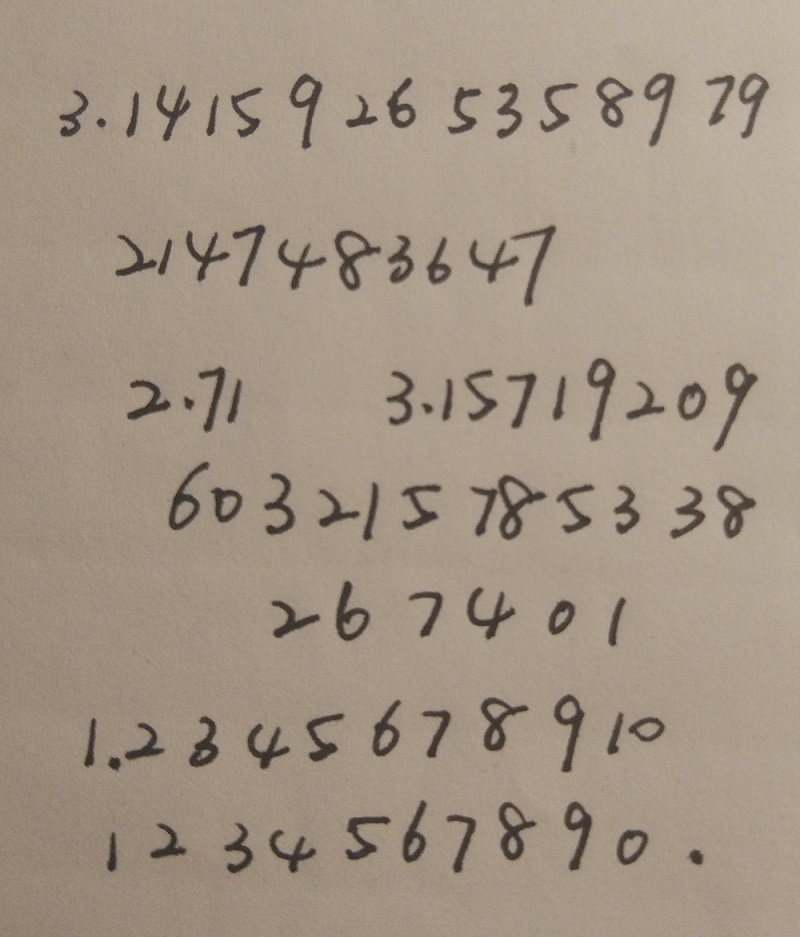 3.14159265358979
2147483647
2.71 3.15719209
603215785338
267401
1.2345678910
1234567890.